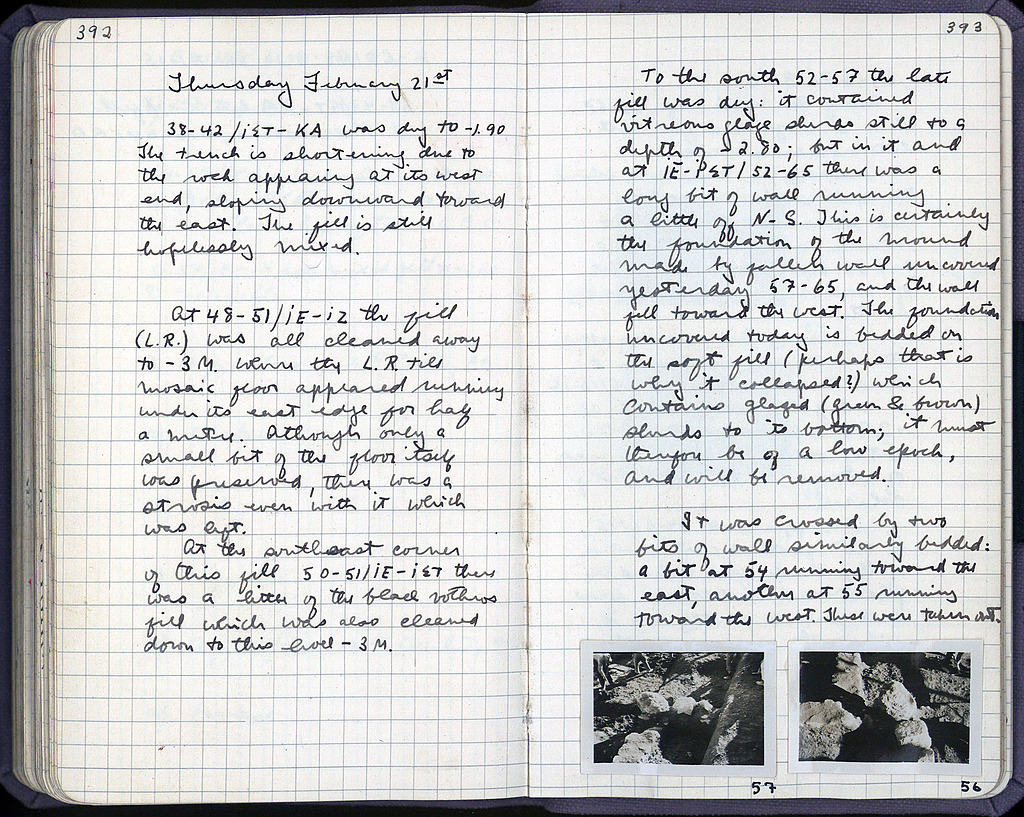 392
Thursday February 21st
38-42/ІΣΤ-ΚΑ was dug to -1.90
The trench is shortening due to
the rock appearing at its west
end, sloping downward toward
the east. The fill is still
hopelessly mixed.
At 48-51/ΙΕ-ΙΖ the fill
(L.R.) was all cleaned away
to -3 M. where the L.R. tile
mosaic floor appeared running
under its east edge for half
a metre. Although only a
small bit of the floor itself
was preserved, there was a
strosis even with it which
was left.
At the southeast corner
of this fill 50-51/ΙΕ-ΙΣΤ there
was a litter of the black bothros
fill which was also cleaned
down to this level -3 M.
393
To the south 52-57 the late
fill was dug: it contained
vitreous glaze sherds still to a
depth of -2.80; but in it and
at ΙΕ-ΙΣΤ/52-65 there was a
long bit of wall running
a little off N-S. This is certainly
the foundation of the mound
made by fallen wall uncovered
yesterday 57-65, and the wall
fell toward the west. The foundation
uncovered today is bedded on
the soft fill (perhaps that is
why it collapsed?) which
contains glazed (green & brown)
sherds to its bottom; it must
therefore be of a low epoch,
and will be removed.
It was crossed by two
bits of wall similarly bedded:
a bit at 54 running toward the
east, another at 55 running
toward the west. These were taken out.
57
56